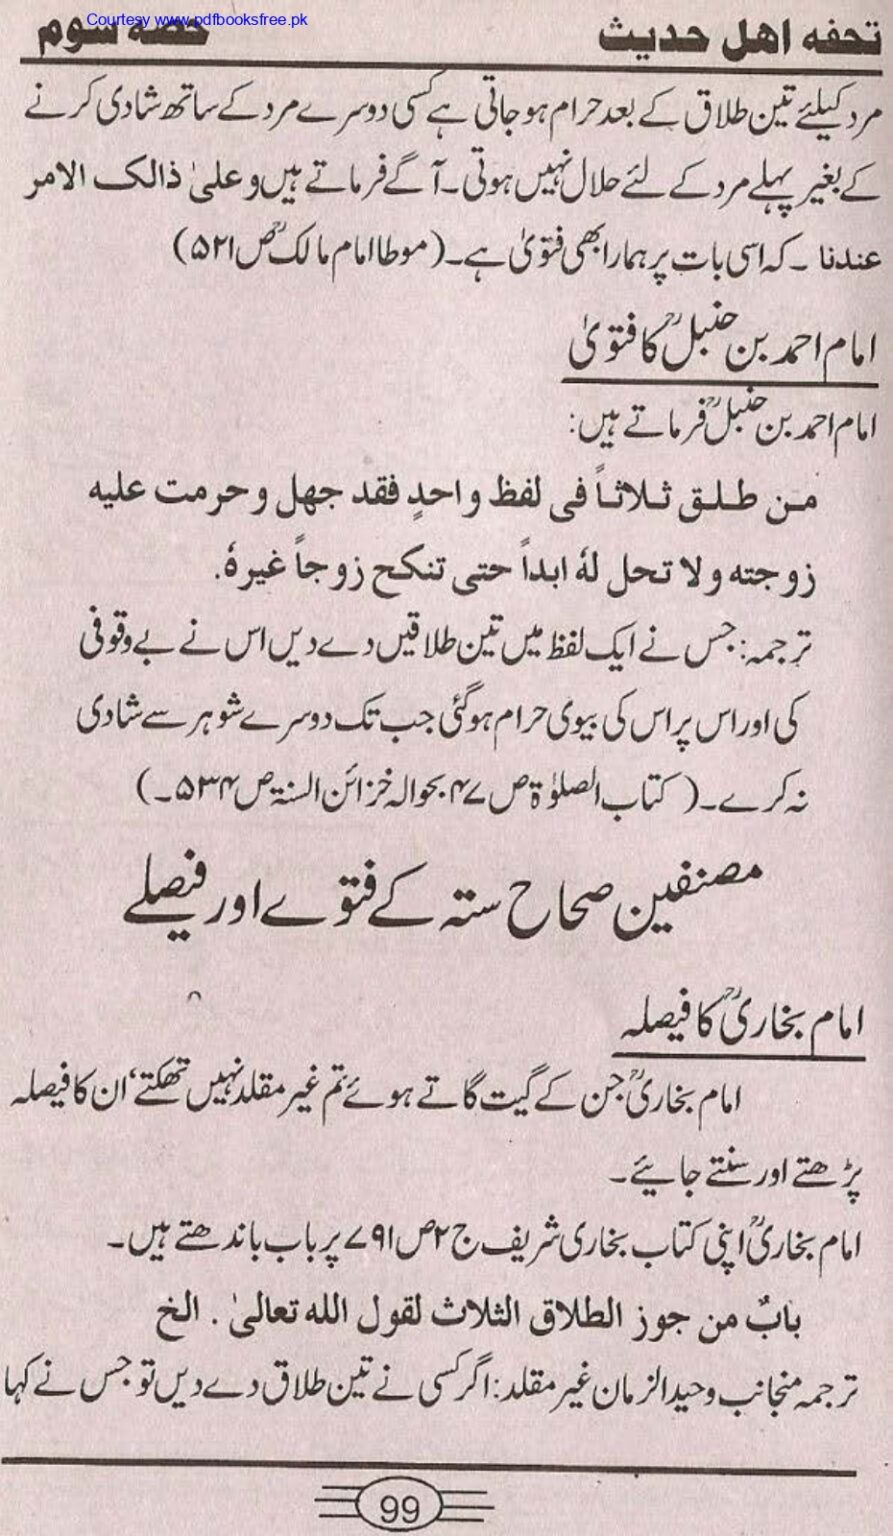 Courtesy www.pdfbooksfree.pk
تحفه اهل حديث حصه سوم
مرد کیلئے تین طلاق کے بعد حرام ہو جاتی ہے کسی دوسرے مرد کے ساتھ شادی کرنے
کے بغیر پہلے مرد کے لئے حلال نہیں ہوتی۔ آگے فرماتے ہیں وعلیٰ ذالک الامر
عندنا ۔ کہ اسی بات پر ہمارا بھی فتویٰ ہے۔ (موطا امام مالکؒ ص۵۲۱)
امام احمد بن حنبلؒ کا فتویٰ
امام احمد بن حنبلؒ فرماتے ہیں:
من طلق ثلاثاً فی لفظ واحدٍ فقد جهل وحرمت علیه
زوجته ولا تحل لهٗ ابداً حتی تنکح زوجاً غیرهٗ.
ترجمہ: جس نے ایک لفظ میں تین طلاقیں دے دیں اس نے بے وقوفی
کی اور اس پر اس کی بیوی حرام ہو گئی جب تک دوسرے شوہر سے شادی
نہ کرے۔ (کتاب الصلوٰۃ ص ۴۷ بحوالہ خزائن السنۃ ص ۵۳۴۔)
مصنفین صحاح ستہ کے فتوے اور فیصلے
امام بخاریؒ کا فیصلہ
امام بخاریؒ جن کے گیت گاتے ہوئے تم غیر مقلد نہیں تھکتے، ان کا فیصلہ
پڑھتے اور سنتے جایئے۔
امام بخاریؒ اپنی کتاب بخاری شریف ج ۲ ص ۷۹۱ پر باب باندھتے ہیں۔
بابٌ من جوز الطلاق الثلاث لقول الله تعالیٰ . الخ
ترجمہ منجانب وحید الزمان غیر مقلد: اگر کسی نے تین طلاق دے دیں تو جس نے کہا
99